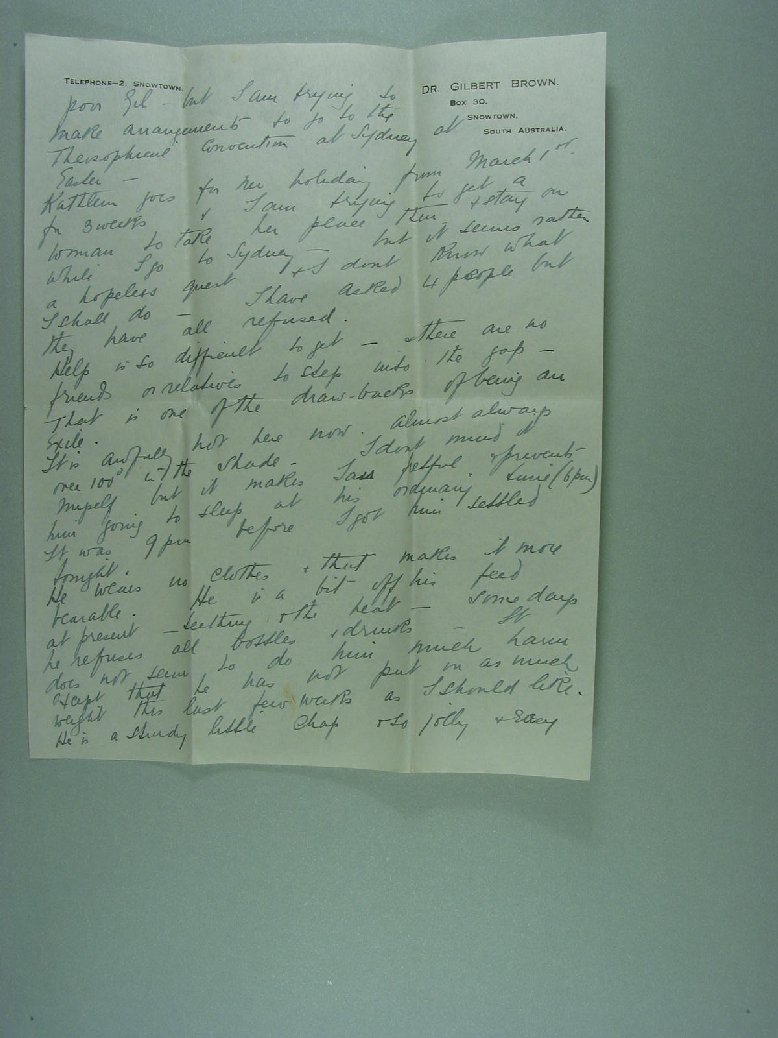 TELEPHONE—2, SNOWTOWN.
DR. GILBERT BROWN.
BOX 30,
SNOWTOWN,
SOUTH AUSTRALIA.
poor Gil – but I am trying to
make arrangements to go to the
Theosophical Convention at Sydney at
Easter –
Kathleen goes for her holiday from March 1st.
for 3 weeks & I am trying to get a
woman to take her place then & stay on
while I go to Sydney – but it seems rather
a hopeless quest & I dont know what
I shall do – I have asked 4 people but
they have all refused.
Help is so difficult to get – & there are no
friends or relatives to step into the gap –
That is one of the draw-backs of being an
Exile.
It is awfully hot here now. almost always
over 100° in the shade – I dont mind it
myself but it makes Ian fretful & prevents
him going to sleep at his ordinary time (6 pm)
It was 9 pm before I got him settled
tonight.
He wears no clothes & that makes it more
bearable. He is a bit off his feed
at present – teething & the heat – Some days
he refuses all bottles & drinks – It
does not seem to do him much harm
except that he has not put on as much
weight this last few weeks as I should like.
He is a sturdy little chap & so jolly & easy